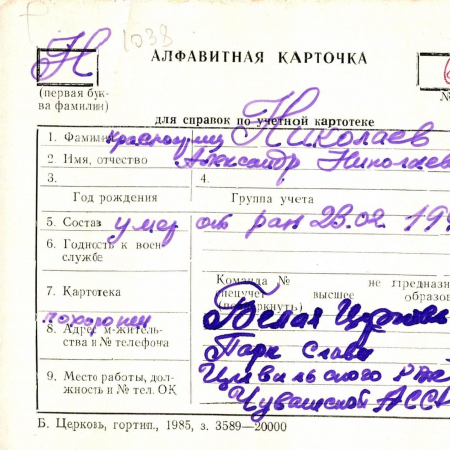 Н 1038
АЛФАВИТНАЯ КАРТОЧКА
(первая бук-
ва фамилии)
№
для справок по учетной картотеке
1. Фамилия красноармеец Николаев
2. Имя, отчество Александр Николаев
3. 4.
Год рождения Группа учета
5. Состав умер от ран 23.02.194
6. Годность к воен
службе
Команда № не предназн
7. Картотека пецучет высшее образов
(подчеркнуть)
похоронен Белая Церковь
8. Адрес м-житель-
ства и № телефона Парк Славы
9. Место работы, дол-
жность и № тел. ОК Цивильского
Чувашской АССР
Б. Церковь, гортип., 1985, з. 3589—20000